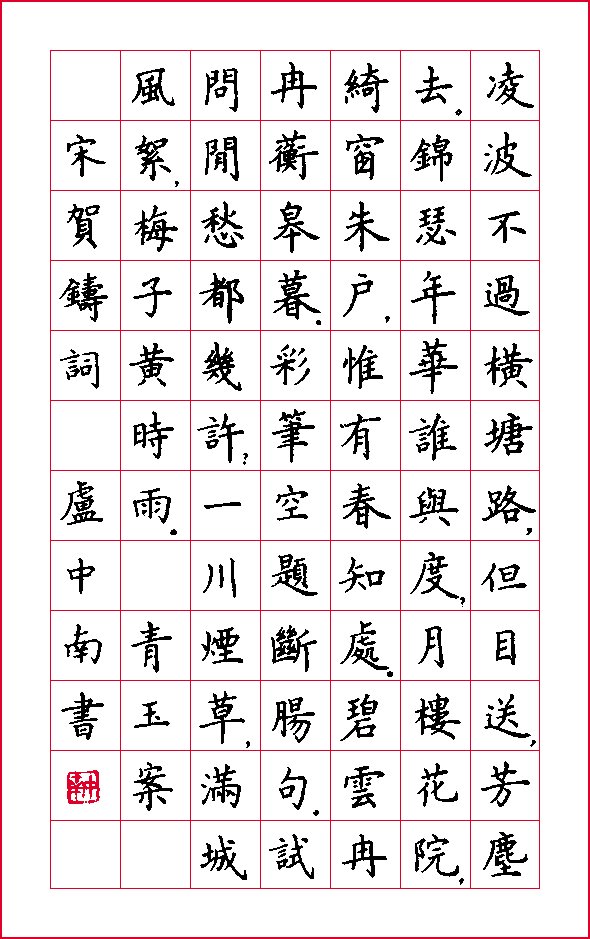 凌波不過橫塘路，但目送，芳塵
去。錦瑟年華誰與度？月樓花院，
綺窗朱户，惟有春知處。碧雲冉
冉蘅皋暮。彩筆空題斷腸句。試
問閒愁都幾許？一川煙草，滿城
風絮，梅子黃時雨。 青玉案
宋賀鑄詞 盧中南書